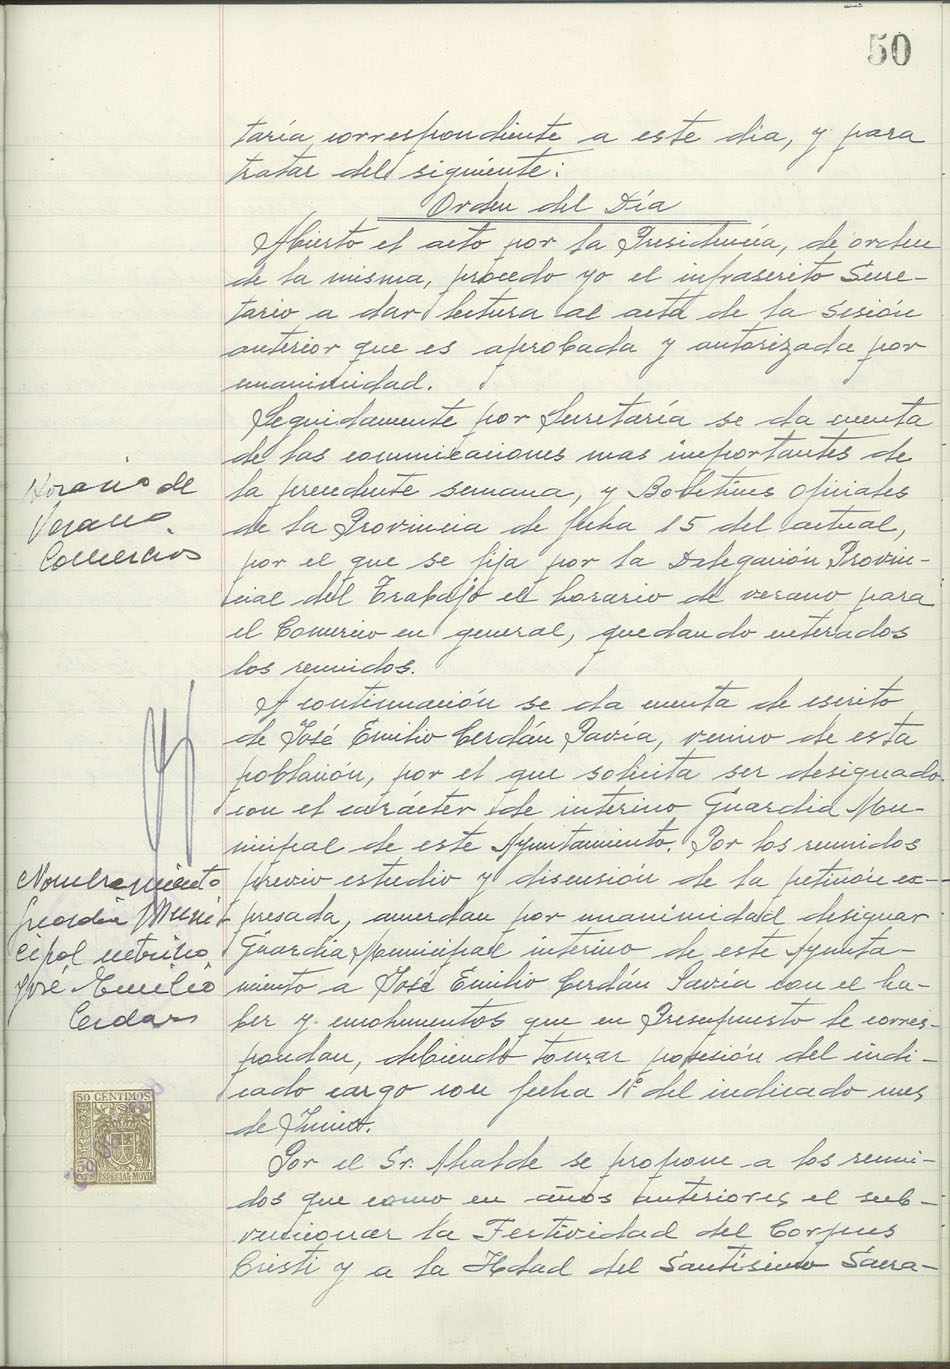 50
taría correspondiente a este dia, y para
tratar del siguiente:
Orden del Día
Abierto el acto por la Presidencia, de orden
de la misma, procedo yo el infrascrito Secre-
tario a dar lectura al acta de la sesión
anterior que es aprobada y autorizada por
unanimidad.
Seguidamente por Secretaría se da cuenta
de las comunicaciones mas importantes de
la precedente semana, y Boletines Oficiales
de la Provincia de fecha 15 del actual,
por el que se fija por la Delegación Provin-
cial del Trabajo el horario de verano para
el Comercio en general, quedando enterados
los reunidos.
Horario de
Verano
Comercios
A continuación se da cuenta de escrito
de José Emilio Cerdán Pavía, vecino de esta
población, por el que solicita ser designado
con el carácter de interino Guardia Mu-
nicipal de este Ayuntamiento. Por los reunidos
previo estudio y discusión de la petición ex-
presada, acuerdan por unanimidad designar
Guardia Municipal interino de este Ayunta-
miento a José Emilio Cerdán Pavía con el ha-
ber y emolumentos que en Presupuesto le corres-
pondan, debiendo tomar posesión del indi-
cado cargo con fecha 1º del indicado mes
de Junio.
Nombramiento
guardia Muni-
cipal interino
José Emilio
Cerdan
50 CENTIMOS
ESPECIAL MOVIL
Por el Sr. Alcalde se propone a los reuni-
dos que como en años anteriores el sub-
vencionar la Festividad del Corpus
Cristi y a la Hdad del Santisimo Sacra-